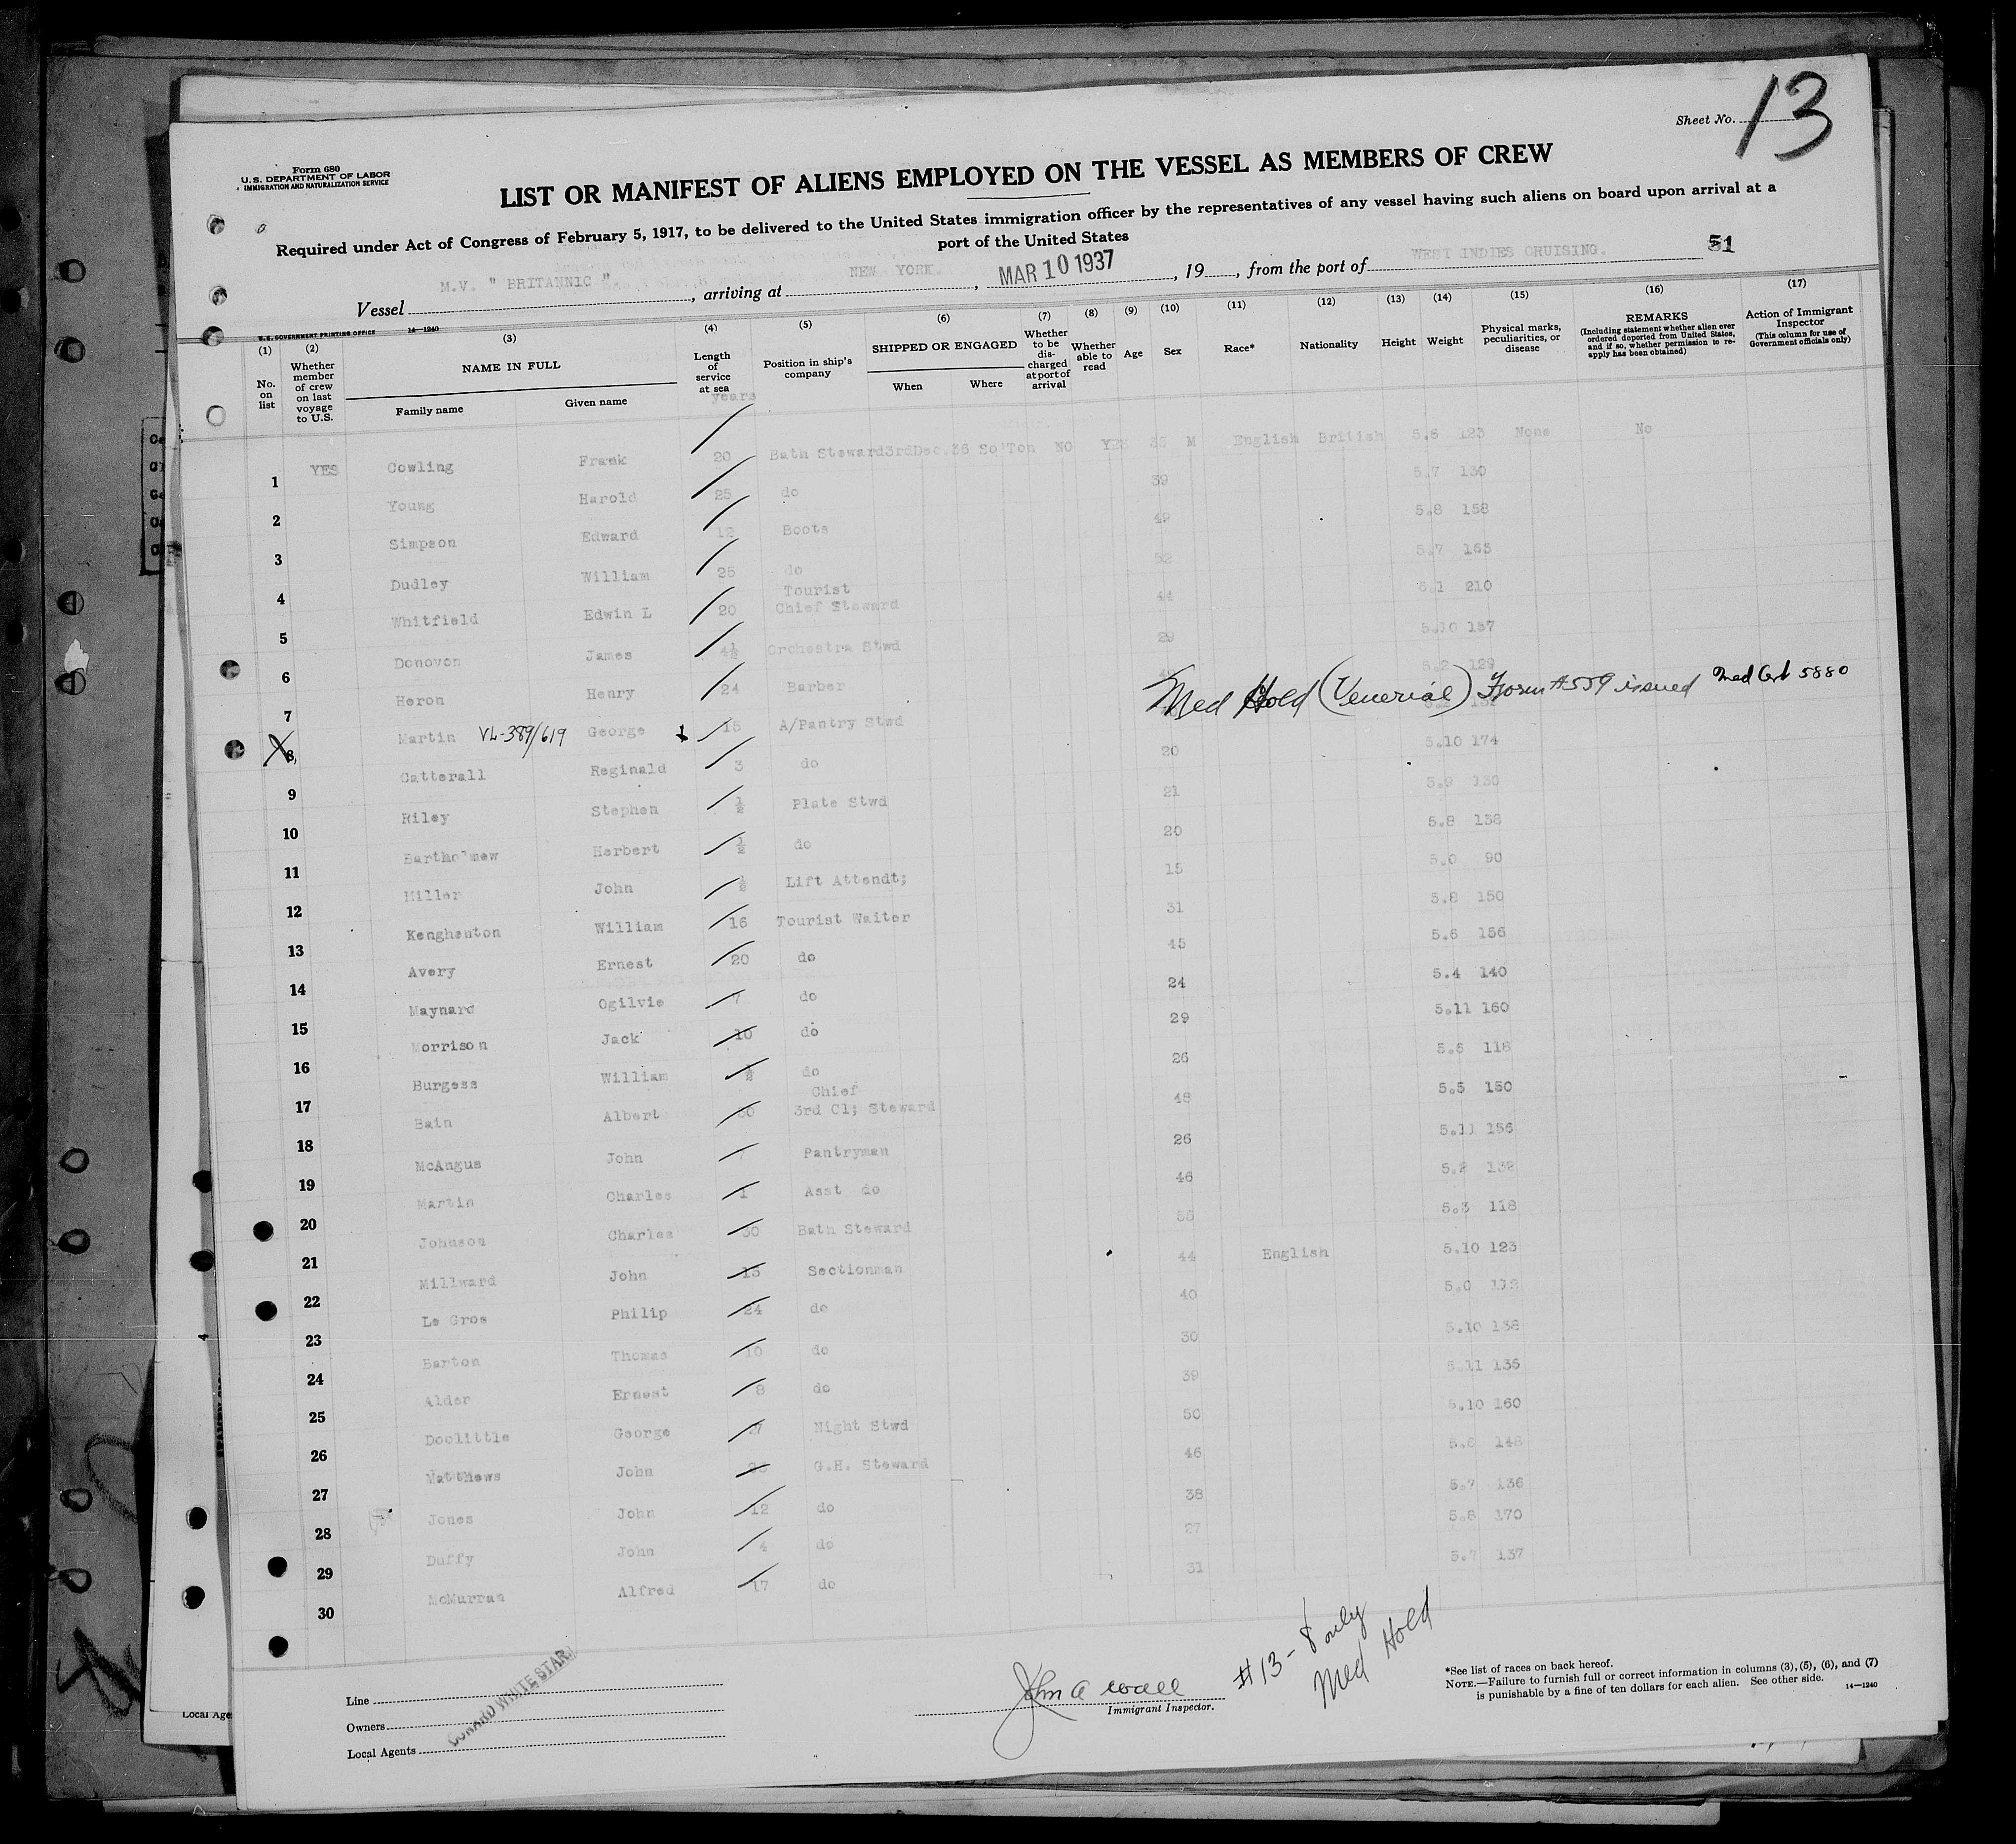 Sheet No. 13
Form 680
U.S. DEPARTMENT OF LABOR
IMMIGRATION AND NATURALIZATION SERVICE
LIST OR MANIFEST OF ALIENS EMPLOYED ON THE VESSEL AS MEMBERS OF CREW
Required under Act of Congress of February 5, 1917, to be delivered to the United States immigration officer by the representatives of any vessel having such aliens on board upon arrival at a
port of the United States
Vessel M.V. " BRITANNIC ", arriving at NEW YORK., MAR 10 1937, 19, from the port of WEST INDIES CRUISING. 51
U.S. GOVERNMENT PRINTING OFFICE 14—1240
(1) No. on list
(2) Whether member of crew on last voyage to U.S.
(3) NAME IN FULL Family name Given name
(4) Length of service at sea years
(5) Position in ship's company
(6) SHIPPED OR ENGAGED When Where
(7) Whether to be discharged at port of arrival
(8) Whether able to read
(9) Age
(10) Sex
(11) Race*
(12) Nationality
(13) Height
(14) Weight
(15) Physical marks, peculiarities, or disease
(16) REMARKS (Including statement whether alien ever ordered deported from United States, and if so, whether permission to reapply has been obtained)
(17) Action of Immigrant Inspector (This column for use of Government officials only)
1 YES Cowling Frank 20 Bath Steward 3rd Dec.36 So'Ton NO YES 35 M English British 5.6 123 None No
2 Young Harold 25 do 39 5.7 130
3 Simpson Edward 12 Boots 49 5.8 158
4 Dudley William 25 do 52 5.7 165
5 Whitfield Edwin L 20 Tourist Chief Steward 44 6.1 210
6 Donovon James 4½ Orchestra Stwd 29 5.10 157
7 Heron Henry 24 Barber 5.2 129
8 Martin VL-389/619 George 15 A/Pantry Stwd Med Hold (Venerial) Form #559 issued Med Cert 5880
9 Catterall Reginald 3 do 20 5.10 174
10 Riley Stephen ½ Plate Stwd 21 5.9 130
11 Bartholmew Herbert ½ do 20 5.8 138
12 Miller John ½ Lift Attendt; 15 5.0 90
13 Kenghenton William 16 Tourist Waiter 31 5.8 150
14 Avery Ernest 20 do 45 5.6 156
15 Maynard Ogilvie 7 do 24 5.4 140
16 Morrison Jack 10 do 29 5.11 160
17 Burgess William ½ do 26 5.6 118
18 Bain Albert 30 Chief 3rd Cl; Steward 48 5.5 150
19 McAngus John 7 Pantryman 26 5.11 156
20 Martin Charles 1 Asst do 46 5.2 132
21 Johnson Charles 30 Bath Steward 55 5.3 118
22 Millward John 15 Sectionman 44 English 5.10 123
23 Le Gros Philip 24 do 40 5.0 112
24 Barton Thomas 10 do 30 5.10 138
25 Alder Ernest 8 do 39 5.11 136
26 Doolittle George 27 Night Stwd 50 5.10 160
27 Matthews John G.H. Steward 46 5.6 148
28 Jones John 12 do 38 5.7 136
29 Duffy John 4 do 27 5.8 170
30 McMurran Alfred 17 do 31 5.7 137
Line
Owners
Local Agents
CUNARD WHITE STAR
John A Wall
Immigrant Inspector.
#13 - 8 only
Med Hold
*See list of races on back hereof.
NOTE.—Failure to furnish full or correct information in columns (3), (5), (6), and (7)
is punishable by a fine of ten dollars for each alien. See other side. 14—1240